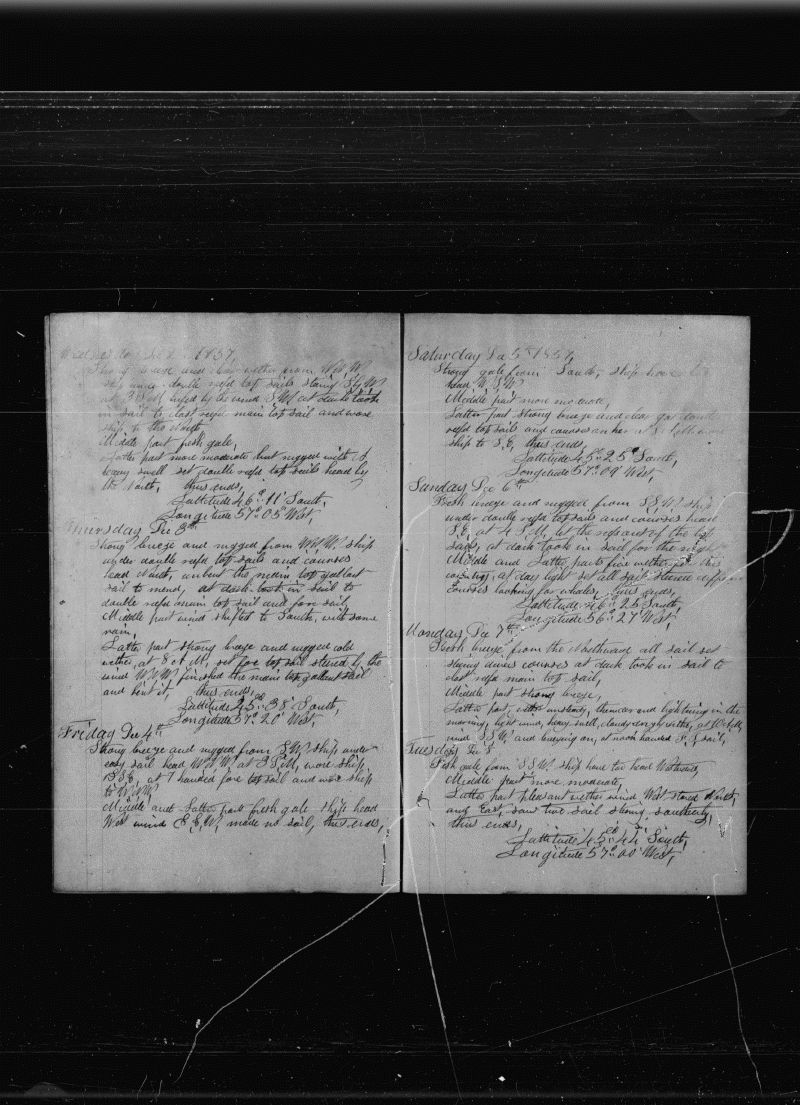 Dec 2 1857,
Strong breeze and wether from W.N.W.
ship under double refd top sails
at 3 P.M. the wind S.W. at dark took
in sail to close refd main top sail and wore
ship to the
Middle part fresh gale,
Latter part more moderate but rugged with a
heavy swell set double refd top sails head by
the North, thus ends,
Lattitude 46°.11' South,
Longitude 57°.05' West,
Thursday Dec 3th
Strong breeze and rugged from W.N.W. ship
under double refd top sails and courses
head North, unbent the main top gallant
sail to mend, at dark took in sail to
double refd main top sail and fore sail,
Middle part wind shifted to South, with some
rain,
Latter part strong breeze and rugged cold
wether, at 8 A.M. set fore top sail stered by the
wind finished the main top gallant sail
and bent it, thus ends,
Lattitude 45°.38' South,
Longitude 57°.20' West,
Friday Dec 4th
Strong breeze and rugged from S.W. ship under
easy sail head at 3 P.M. wore ship
at 7 handed fore top sail and wore ship
to
Middle and Latter part fresh gale ship head
West wind made no sail, thus ends,
Saturday 5th 1857,
Strong gale from South, ship
head W.S.W.
Middle part more moderate,
Latter part strong breeze and clear got double
refd top sails and courses on her at
ship to S.E, thus ends,
Lattitude 45°.25' South,
Longitude 57°.09' West,
Sunday Dec 6th
Fresh breeze and rugged from S.S.W. ship
under double refd top sails and courses head
S.E. at 4 P.M. let the refs out of the top
sails, at dark took in sail for the night
Middle and Latter parts fine wether for this
country, at day light set all sail stered different
courses looking for whales, thus ends,
Lattitude 46°.25' South,
Longitude 56°.27' West,
Monday Dec 7th
Fresh breeze from the Northward all sail set
stering divers courses at dark took in sail to
close refd main top sail,
Middle part strong breeze,
Latter part, wether unsteady, thunder and lightning in the
morning, light wind, heavy swell, cloudy wether, at
wind S.S.W. and breezing on, at noon handed sail,
Tuesday Dec 8
Fresh gale from S.S.W. ship hove too head Westward,
Middle part more moderate,
Latter part pleasant wether wind West stered North
and East, saw two sail stering southerly,
thus ends,
Lattitude 45°.44' South,
Longitude 57°.00' West,